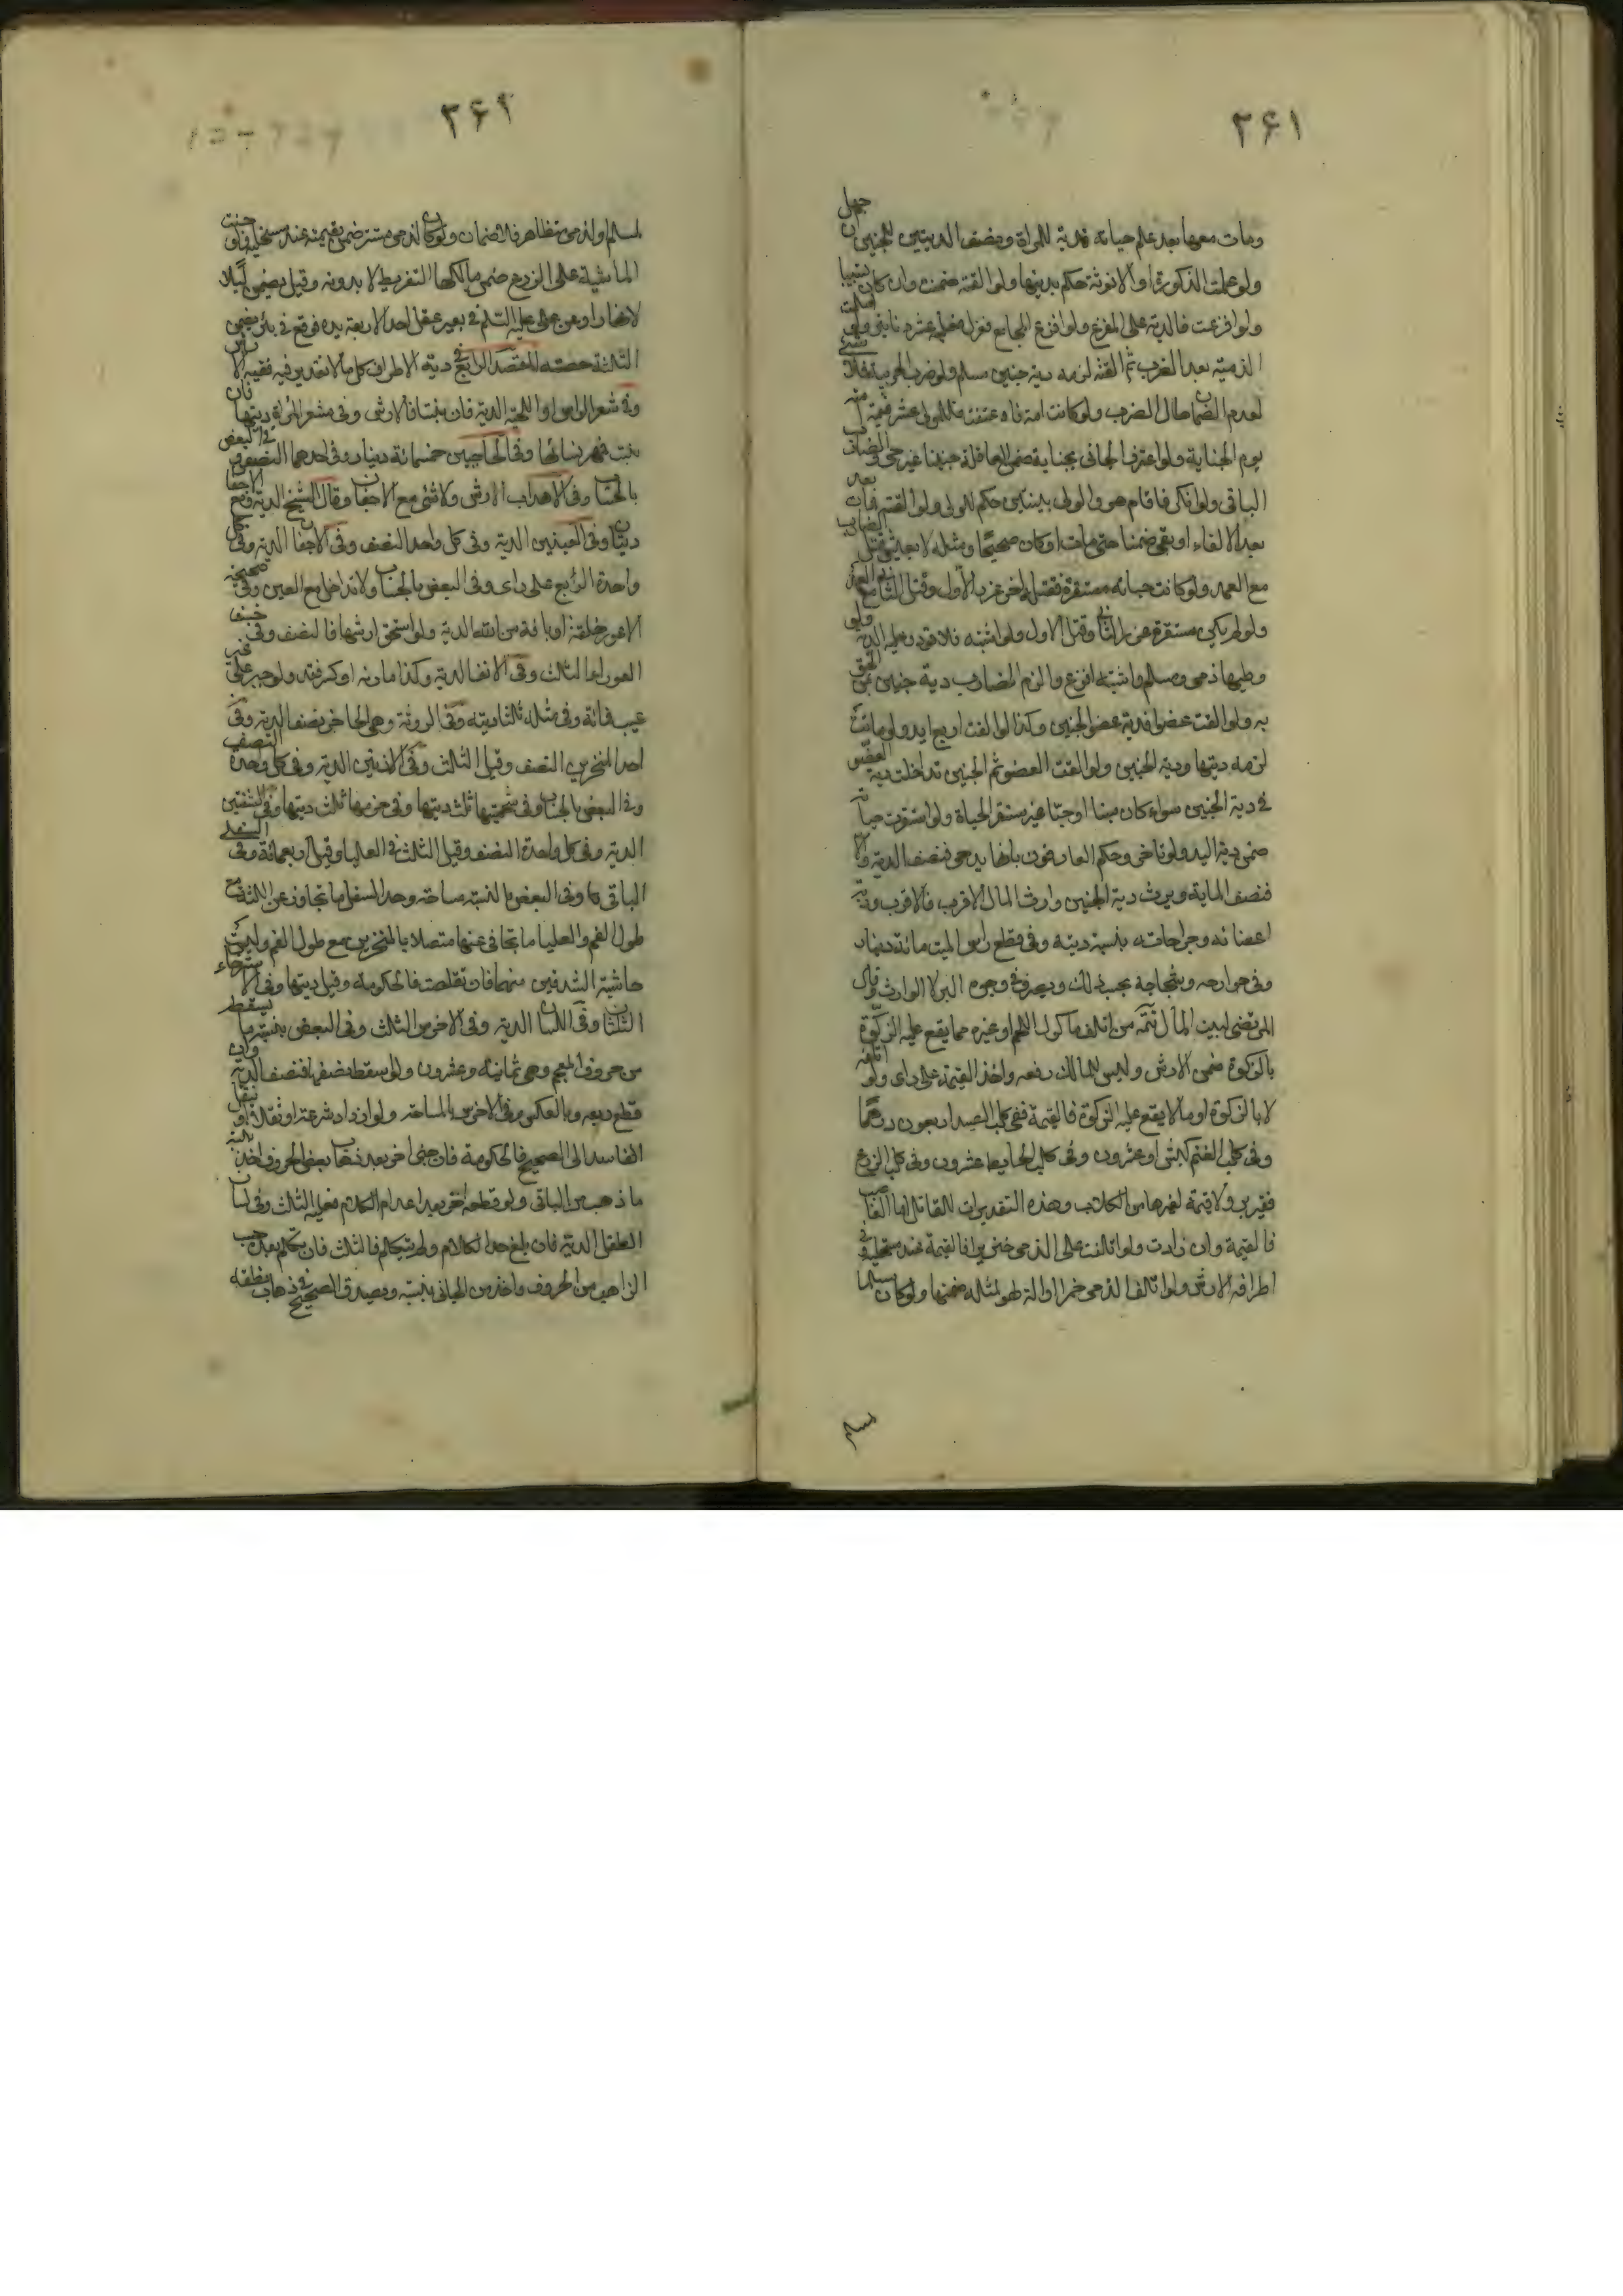 ۳۶۱
ومات معها بعد علم حياته فدية للمراة ونصف الديتين للجنين ان جهل
ولو علمت الذكورة او الانوثة حكم بديتها ولو القته ضمنت وان كان تسبيبا
ولو افزعت فالدية على المفزع ولو افزع المجامع فعزل فعليه عشرة دنانير ولو اسلمت
الذمية بعد الضرب ثم القته لزمه دية جنين مسلم ولو ضرب الحربية فلا شيء
لعدم الضمان حال الضرب ولو كانت امة فاعتقت فللمولى عشر قيمة امه
يوم الجناية ولو اعترف الجاني بجناية ضمن العاقلة جنينا غير حي والضارب
الباقي ولو انكر فاقام هو والولي بينتين حكم للولي ولو القته فمات بعد
بعد الالقاء او بقي ضمنا حتى مات او كان صحيحا ومثله لا يعيش قتل الضارب
مع العمد ولو كانت حياته مستقرة فقتله اخر عزر الاول وقتل الثاني مع العمد
ولو لم يكن مستقرة عزر الثاني وقتل الاول ولو اشتبه فلا قود وعليه الدية ولو
وطيها ذمي ومسلم واشتبه اقرع والزم الضارب دية جنين من الحق
به ولو القت عضوا فدية عضو الجنين وكذا لو القت اربع ايد ولو ماتت
لزمه ديتها ودية الجنين ولو القت العضو ثم الجنين تداخلت دية العضو
في دية الجنين سواء كان ميتا او حيا غير مستقر الحياة ولو استقرت حياته
ضمن دية اليد ولو تاخر وحكم العارفون بانها يد حي فنصف الدية والا
فنصف الماية ويرث دية الجنين وارث المال الاقرب فالاقرب ودية
اعضائه وجراحاته بنسبة ديته وفي قطع راس الميت مائة دينار
وفي جوارحه وشجاجه بحسب ذلك ويصرف في وجوه البر لا الوارث وقال
المرتضى لبيت المال تتمة من اتلف ماكول اللحم او غيره مما يقع عليه الزكوة
بالزكوة ضمن الارش وليس للمالك دفعه واخذ القيمة على راى ولو اتلفه
لا بالزكوة او ما لا يقع عليه الزكوة فالقيمة ففي كلب الصيد اربعون درهما
وفي كلب الغنم كبش او عشرون وفي كلب الحايط عشرون وفي كلب الزرع
قفيز بر ولا قيمة لغيرها من الكلاب وهذه التقديرات للقاتل اما الغاصب
فالقيمة وان زادت ولو اتلفت على الذمي خنزيرا فالقيمة عند مستحليه وفي
اطرافه الارش ولو اتلف الذمي خمرا او آلة لهو لمثله ضمنها ولو كان مسلما
مسلم
۳۶۲
لمسلم او لذمي متظاهر فلا ضمان ولو كان لذمي مستتر ضمن بقيمته عند مستحليه ولو جنت
الماشية على الزرع ضمن مالكها التفريط لا بدونه وقيل يضمن ليلا
لا نهارا وعن علي عليه السلم في بعير عقل احد الاربعة يده فوقع في بئر يضمن
الثلثة حصته المقصد الرابع في دية الاطراف كل ما لا تقدير فيه ففيه الارش
وفي شعر الراس او اللحية الدية فان نبتا فالارش وفي شعر المراة ديتها فان
نبت فمهر نسائها وفي الحاجبين خمسمائة دينار وفي احدهما النصف وفي البعض
بالحساب وفي الاهداب الارش ولا شئ مع الاجفان وقال الشيخ الدية ومع الاجفان
ديتان وفي العينين الدية وفي كل واحد النصف وفي الاجفان الدية وفي كل
واحدة الرابع على راى وفي البعض بالحساب ولا تداخل مع العين وفي صحيحة
الاعور خلقة او بافة من الله الدية ولو استحق ارشها فالنصف وفي خسف
العوراء الثلث وفي الانف الدية وكذا مارنه او كسر ففسد ولو جبر على غير
عيب فمائة وفي شلله ثلثا ديته وفي الروثة وهي الحاجز نصف الدية وفي
احد المنخرين النصف وقيل الثلث وفي الاذنين الدية وفي كل واحدة النصف
وفي البعض بالحساب وفي شحمتها ثلث ديتها وفي خرمها ثلث ديتها وفي الشفتين
الدية وفي كل واحدة النصف وقيل الثلث في العليا وقيل اربعمائة وفي السفلى
الباقي وفي البعض بالنسبة مساحة وحد السفلى ما تجافى عن اللثة مع
طول الفم والعليا ما تجافى عنها متصلا بالمنخرين مع طول الفم وليست
حاشية الشدقين منهما فان تقلصت فالحكومة وقيل ديتها وفي الاسترخاء
الثلثان وفي اللسان الدية وفي الاخرس الثلث وفي البعض بنسبة ما يسقط
من حروف المعجم وهي ثمانية وعشرون ولو سقط نصفها فنصف الدية وان
قطع ربعه وبالعكس وفي الاخرس بالمساحة ولو ازداد سرعة او ثقلا او نقل
الفاسد الى الصحيح فالحكومة فان جنى اخر بعد ذهاب بعض الحروف اخذ بنسبة
ما ذهب من الباقي ولو قطعه اخر بعد اعدام الكلام فعليه الثلث وفي لسان
الطفل الدية فان بلغ حد الكلام ولم يتكلم فالثلث فان تكلم بعد حسب
الذاهب من الحروف واخذ من الجاني بنسبته ويصدق الصحيح في ذهاب نطقه